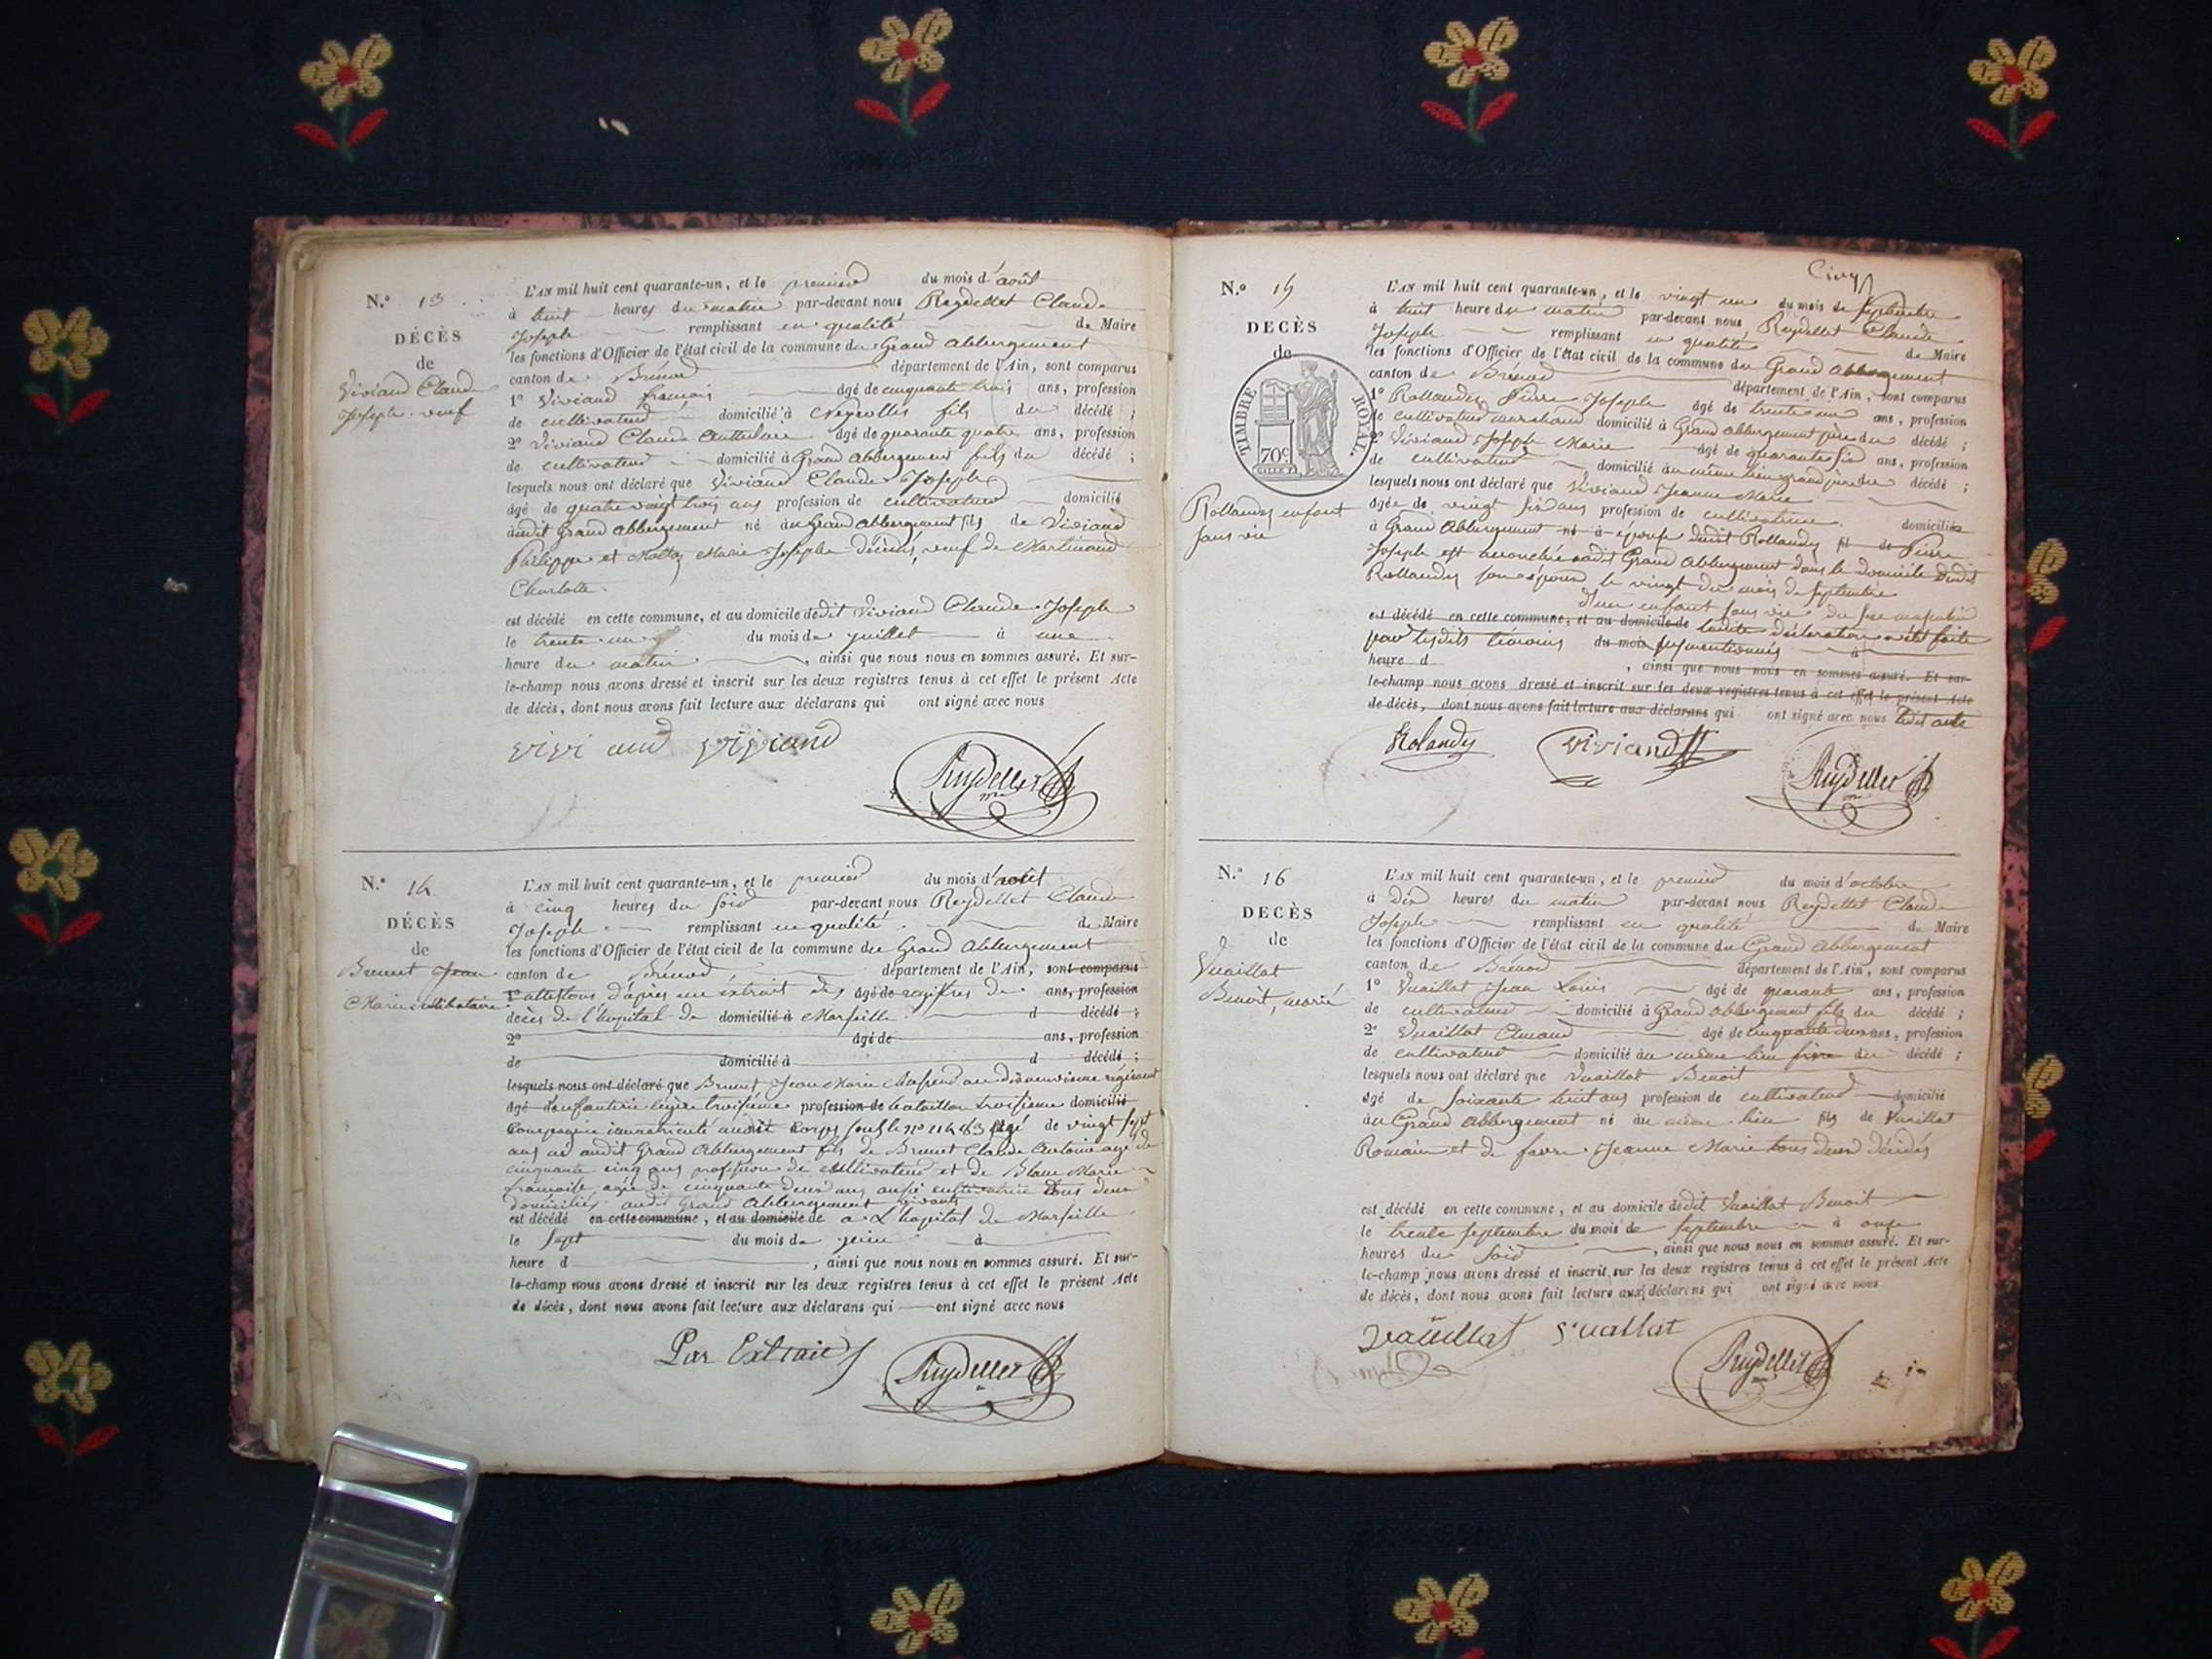 N.° 13
DÉCÈS
de
Viviand Claude
Joseph veuf
L'AN mil huit cent quarante-un, et le premier du mois d'août
à huit heures du matin par-devant nous Reydellet Claude
Joseph remplissant en qualité de Maire
les fonctions d'Officier de l'état civil de la commune du Grand Abbergement
canton de Brénod département de l'Ain, sont comparus
1° Viviand françois âgé de cinquante trois ans, profession
de cultivateur domicilié à fils du décédé ;
2° Viviand Claude âgé de quarante quatre ans, profession
de cultivateur domicilié à Grand Abbergement fils du décédé ;
lesquels nous ont déclaré que Viviand Claude Joseph
âgé de quatre vingt trois ans profession de cultivateur domicilié
audit Grand Abbergement né au Grand Abbergement fils de Viviand
Philippe et Marie Josephe décédés, veuf de Martinand
Charlotte
est décédé en cette commune, et au domicile dudit Viviand Claude Joseph
le trente un du mois de juillet à une
heure du matin , ainsi que nous nous en sommes assuré. Et sur-
le-champ nous avons dressé et inscrit sur les deux registres tenus à cet effet le présent Acte
de décès, dont nous avons fait lecture aux déclarans qui ont signé avec nous
viviand viviand
Reydellet
N.° 14
DÉCÈS
de
Brunet Jean
Marie célibataire
L'AN mil huit cent quarante-un, et le premier du mois d'août
à cinq heures du soir par-devant nous Reydellet Claude
Joseph remplissant en qualité de Maire
les fonctions d'Officier de l'état civil de la commune du Grand Abbergement
canton de Brénod département de l'Ain, sont comparus
1° attestons d'après un extrait des âgé de registres de ans, profession
décès de l'hopital de domicilié à Marseille d décédé ;
2° âgé de ans, profession
de domicilié à d décédé ;
lesquels nous ont déclaré que Brunet Jean Marie au dixneuvième régiment
âgé d'infanterie légère troisième profession de bataillon troisième domicilié
Compagnie immatriculé audit Corps sous le n° âgé de vingt sept
ans né audit Grand Abbergement fils de Brunet Claude Antoine âgé de
cinquante cinq ans profession de cultivateur et de Blanc Marie
françoise âgée de cinquante deux ans aussi cultivatrice tous deux
domiciliés audit Grand Abbergement vivants
est décédé en cette commune, et au domicile de a L'hopital de Marseille
le sept du mois de juin à
heure d , ainsi que nous nous en sommes assuré. Et sur-
le-champ nous avons dressé et inscrit sur les deux registres tenus à cet effet le présent Acte
de décès, dont nous avons fait lecture aux déclarans qui ont signé avec nous
Par Extrait
Reydellet
Cinq
N.° 15
DECÈS
de
TIMBRE ROYAL.
70c
Rollandy enfant
sans vie
L'AN mil huit cent quarante-un, et le vingt un du mois de septembre
à huit heure du matin par-devant nous Reydellet Claude
Joseph remplissant en qualité de Maire
les fonctions d'Officier de l'état civil de la commune du Grand Abbergement
canton de Brénod département de l'Ain, sont comparus
1° Rollandy Pierre Joseph âgé de trente un ans, profession
de cultivateur marchand domicilié à Grand Abbergement père du décédé ;
2° Viviand Joseph Marie âgé de quarante six ans, profession
de cultivateur domicilié au même lieu grand père du décédé ;
lesquels nous ont déclaré que Viviand Jeanne Marie
âgée de vingt six ans profession de cultivatrice domiciliée
à Grand Abbergement né à épouse dudit Rollandy fil de Pierre
Joseph est accouchée audit Grand Abbergement dans le domicile dudit
Rollandy son époux le vingt du mois de septembre
d'un enfant sans vie du sexe masculin
est décédé en cette commune, et au domicile de ladite déclaration a été faite
par lesdits témoins du mois susmentionnés à
heure d , ainsi que nous nous en sommes assuré. Et sur-
le-champ nous avons dressé et inscrit sur les deux registres tenus à cet effet le présent Acte
de décès, dont nous avons fait lecture aux déclarans qui ont signé avec nous ledit acte
Rolandy viviand
Reydellet
N.° 16
DECÈS
de
Vuaillat
Benoit, marié
L'AN mil huit cent quarante-un, et le premier du mois d'octobre
à dix heures du matin par-devant nous Reydellet Claude
Joseph remplissant en qualité de Maire
les fonctions d'Officier de l'état civil de la commune du Grand Abbergement
canton de Brénod département de l'Ain, sont comparus
1° Vuaillat Jean Louis âgé de quarante ans, profession
de cultivateur domicilié à Grand Abbergement fils du décédé ;
2° Vuaillat âgé de cinquante deux ans, profession
de cultivateur domicilié au même lieu frère du décédé ;
lesquels nous ont déclaré que Vuaillat Benoit
âgé de soixante huit ans profession de cultivateur domicilié
au Grand Abbergement né au même lieu fils de Vuaillat
Romain et de favre Jeanne Marie tous deux décédés
est décédé en cette commune, et au domicile dudit Vuaillat Benoit
le trente septembre du mois de septembre à onze
heures du soir , ainsi que nous nous en sommes assuré. Et sur-
le-champ nous avons dressé et inscrit sur les deux registres tenus à cet effet le présent Acte
de décès, dont nous avons fait lecture aux déclarans qui ont signé avec nous
Vuaillat Vuaillat
Reydellet